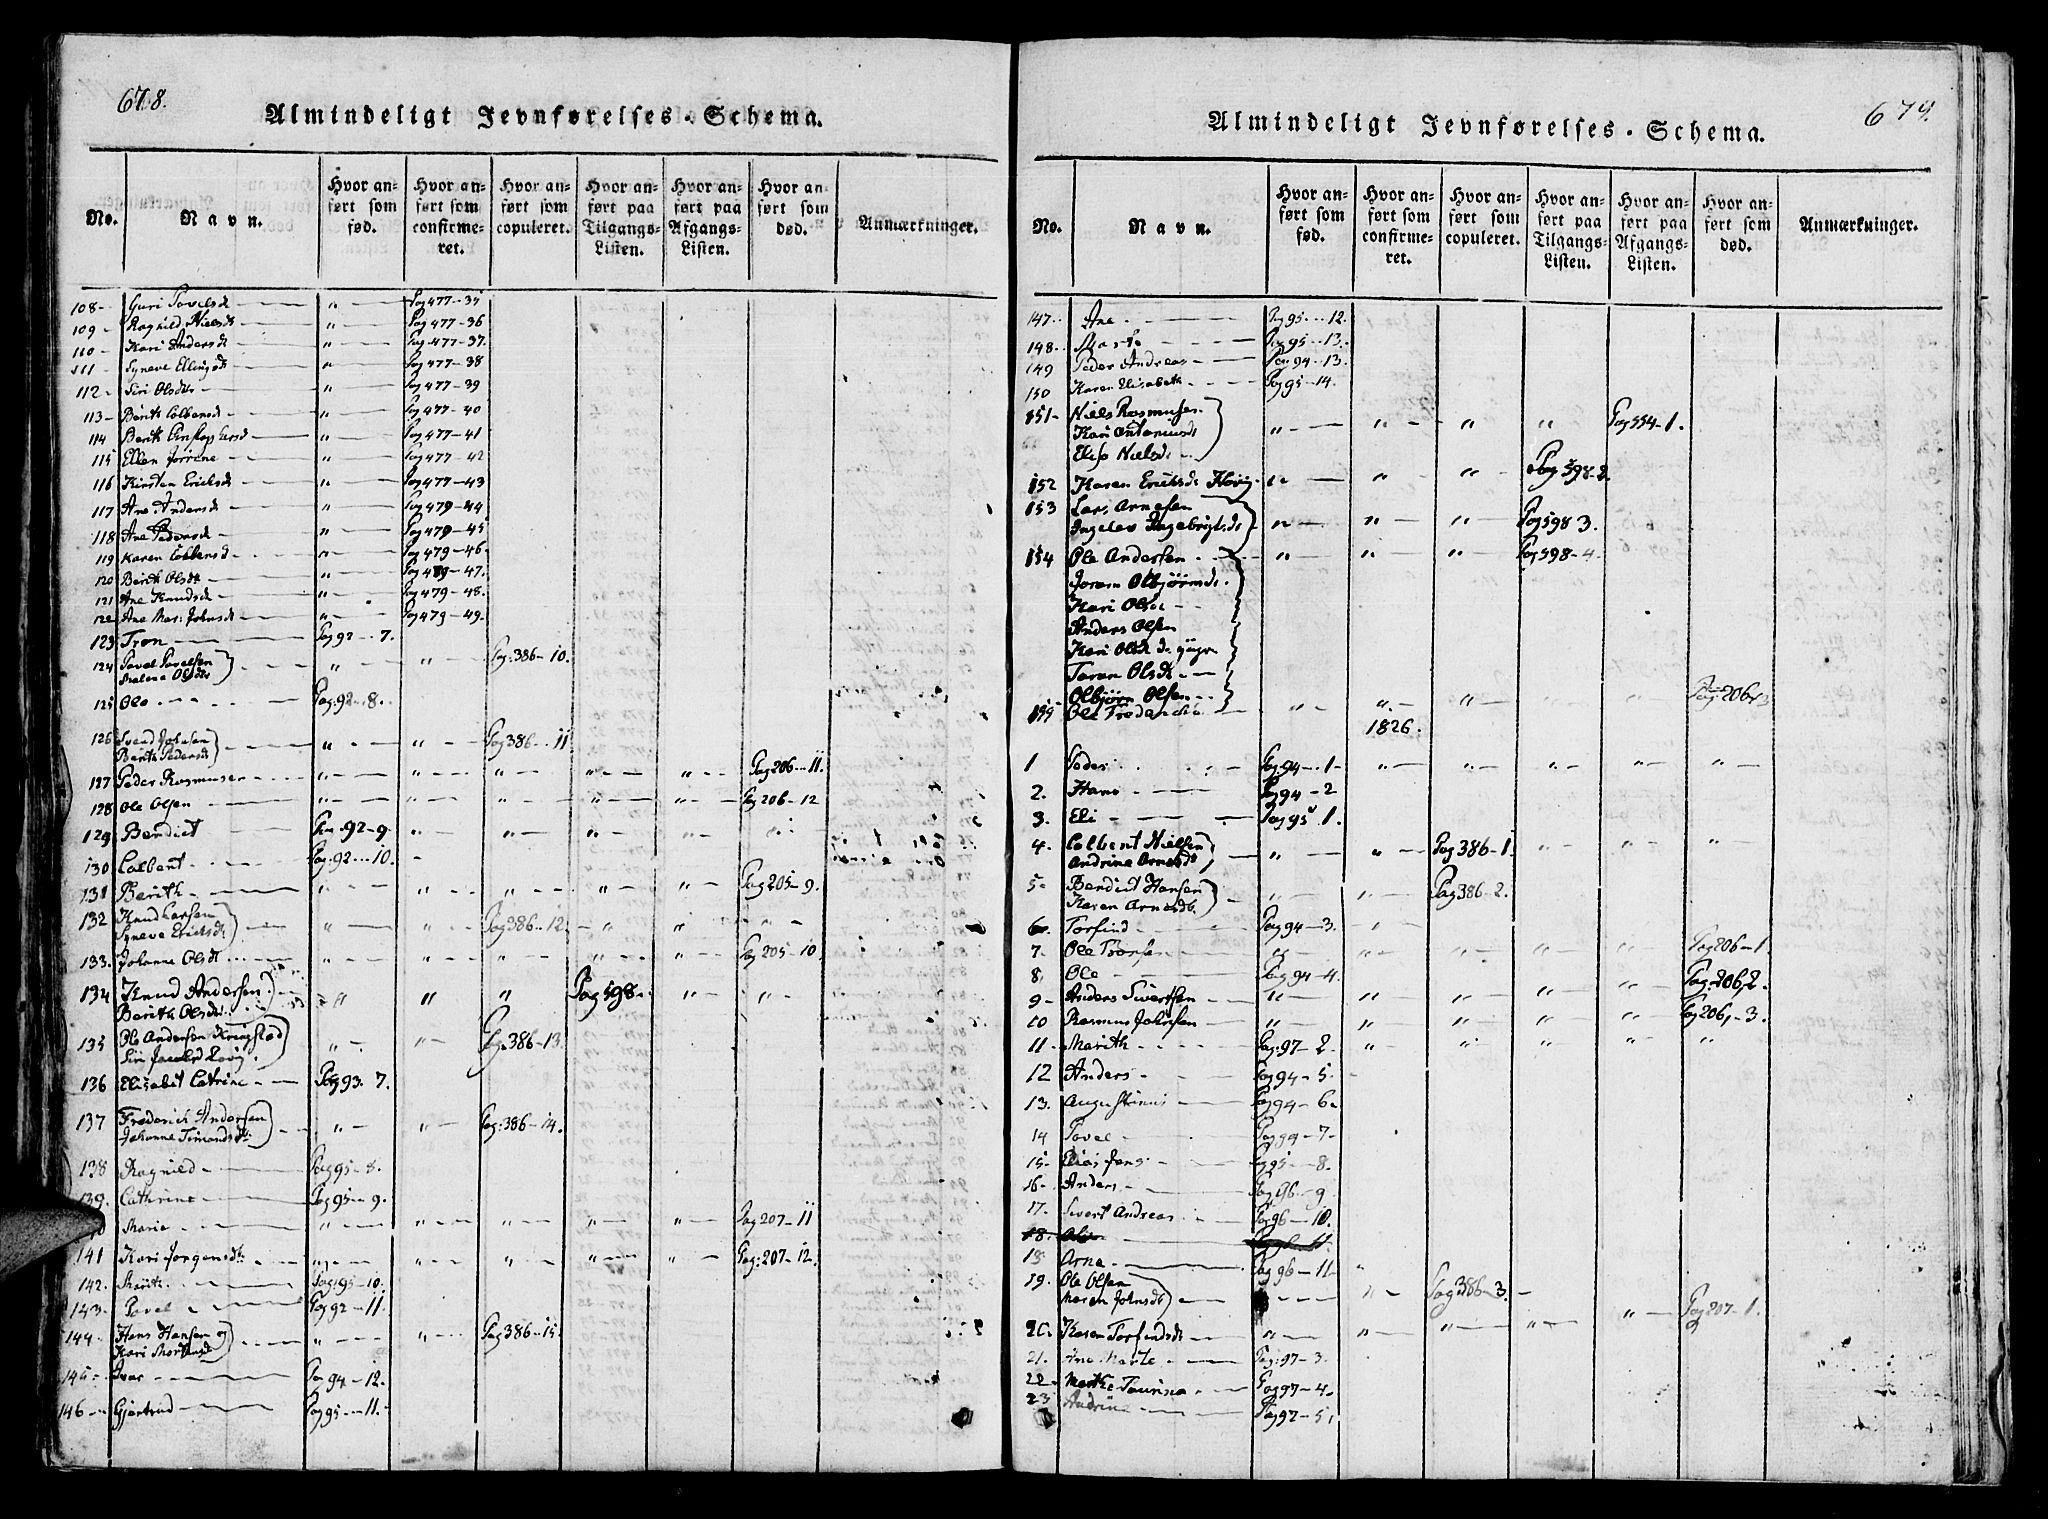 678.
Almindeligt Jevnførelses-Schema.
No. Navn. Hvor anført som fød. Hvor anført som confirmeret. Hvor anført som copuleret. Hvor anført paa Tilgangs-Listen. Hvor anført paa Afgangs-Listen. Hvor anført som død. Anmærkninger.
108 - Guri Povelsd — " — Pag 477-35
109 - Ragnild Nielsd — " — Pag 477-36
110 - Kari Andersd — " — Pag 477-37.
111 - Syneve Ellingsd — " — Pag 477-38
112 - Siri Olsdtr — " — Pag 477-39
113 - Berith Colbensd — " — Pag 477-40
114 Berith — " — Pag 477-41
115 Ellen — " — Pag 477-42
116 Kirsten Ericksd — " — Pag 477-43
117 Ane Andersd — " — Pag 479-44
118 Ane Pedersd — " — Pag 479-45
119 Karen Colbensd — " — Pag 479-46.
120 Berith Olsdt — " — Pag 479-47.
121 Ane Knudsd — " — Pag 479-48.
122 Ane Mari Johnsd — " — Pag 479-49.
123 Tron — Pag 92 - 7.
124 Povel Povelsen
Malene Olsdtr " — " — Pag: 386-10.
125 Ole — Pag: 92 - 8.
126 Svend Johnsen
Berith Pedersd " — " — Pag 386 - 11
127 Peder Rasmusen — " — " — " — " — " — Pag 206 - 11.
128 Ole Olsen — " — " — " — " — " — Pag 206-12
129 Bendict — Pag: 92-9. " — " — " — " — "
130 Colbent — Pag: 92 - 10.
131 Berith — " — " — " — " — " — Pag 205-9.
132 Knud Larsen
Syneve Ericksdt " — " — Pag 386-12. " — " — "
133. Johanne Olsdt — " — " — " — " — " — Pag 205-10.
134 Knud Andersen
Berith Olsdtr " — " — " Pag 598 - " — "
135 Ole Andersen Kringstad
Siri Jacobsd " — " — Pg. 386-13.
136 Elisabet Catrine — Pag 93. 7.
137 Frederich Andersen
Johanne Timandsdtr " — " — Pag: 386-14.
138 Ragnild — Pag 95-8.
139. Cathrine — Pag 95-9.
Marie — " — " — " — " — " — Pag 207-11
141 Kari Jorgensdtr — " — " — " — " — " — Pag: 207-12.
142. Marith — Pag 95-10.
143 - Povel — Pag 92-11.
144 - Hans Hansen og
Kari Mortensd " — " — Pag 386-15.
145 - Ivar — Pag 94-12.
146 - Gjertrud — Pag 95 - 11.
679.
Almindeligt Jevnførelses-Schema.
No. Navn. Hvor anført som fød. Hvor anført som confirmeret. Hvor anført som copuleret. Hvor anført paa Tilgangs-Listen. Hvor anført paa Afgangs-Listen. Hvor anført som død. Anmærkninger.
147 - Ane — Pag 95 - 12.
148 - Marte — Pag 95 - 13.
149 Peder Andreas — Pag 94 - 13.
150 Karen Elisabeth — Pag 95 - 14.
151 - Niels Rasmusen.
Kari Antoniusdt
Elise Nielsd " — " — " — " Pag 554-1.
152 Karen Ericksd Hovig — " — " — " — Pag 598-2.
153 Lars Arnesen
Ingelev Ingebrigtsdt " — " — " — Pag 598 3.
154 Ole Andersen — " — " — " — Pag 598-4.
Joran Olbjørnsdt.
Kari Olsdt
Anders Olsen
Kari Olsdt de yngre
Toren Olsdt —
Olbjørn Olsen
155 Ole Frederichs — " — " — " — " — " — Pag: 206,
1826.
1 Peder — Pag 94 - 1 - " — " — " — " — "
2. Hans — Pag 94 - 2
3. Eli — Pag 95 - 1.
4. Colbent Nielsen
Andrine Arnesdt " — " — Pag 386-1. " — " — "
5 - Bendict Hansen
Karen Arnesdtr. " — " — Pag 386-2.
6. Torfind — Pag 94-3. "
7. Ole Tronsen — " — " — " — " — " — Pag 206-1.
8. Ole — Pag 94-4. " — " — " — " — Pag: 206,2.
9 - Anders Sivertsen — " — " — " — " — " — Pag 206,-3.
10 Rasmus Johnsen — " — " — " — " — "
11. Marith — Pag: 97-2. " — " — " — " — "
12 Anders — Pag 94-5.
13. Augustinus — Pag 94-6.
14 Povel — Pag 94-7.
15 - Elias Jens — Pag 95 - 8.
16 - Anders — Pag 96 - 9
17. Sivert Andreas — Pag 96 - 10.
18. — Pag 96 - 11.
Arne — Pag 96-11
19. Ole Olsen
Maren Johnsdt — " — Pag 386-3.
20. Karen Torfindsdt — " — " — " — " — " — Pag 207-1.
21. Ane Marte — Pag: 97-3.
22 - Marthe Taurina — Pag 97-4.
23 Andrine — Pag 97-5.